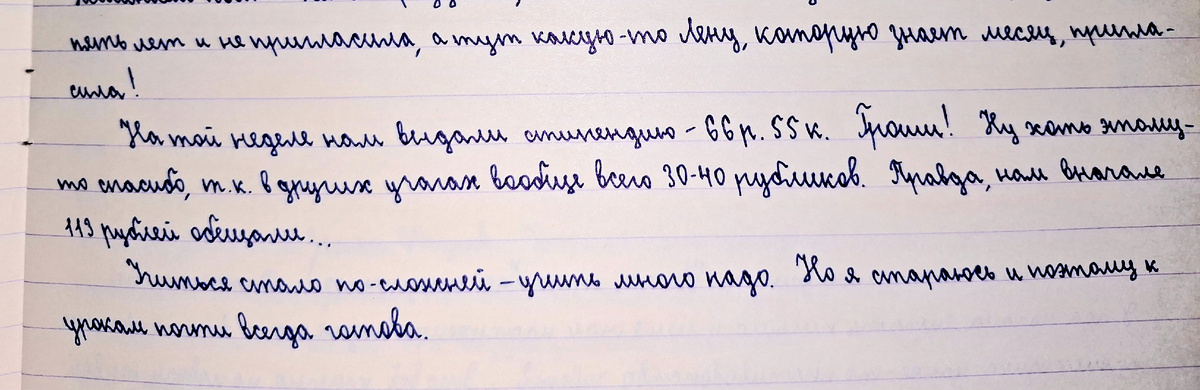 пять лет и не пригласила, а тут какую-то Лену, которую знает месяц, пригла-
сила!
На той неделе нам выдали стипендию - 66 р. 55 к. Гроши! Ну хоть этому-
то спасибо, т.к. в других учагах вообще всего 30-40 рубликов. Правда, нам вначале
113 рублей обещали...
Учиться стало по-сложней - учить много надо. Но я стараюсь и поэтому к
урокам почти всегда готова.